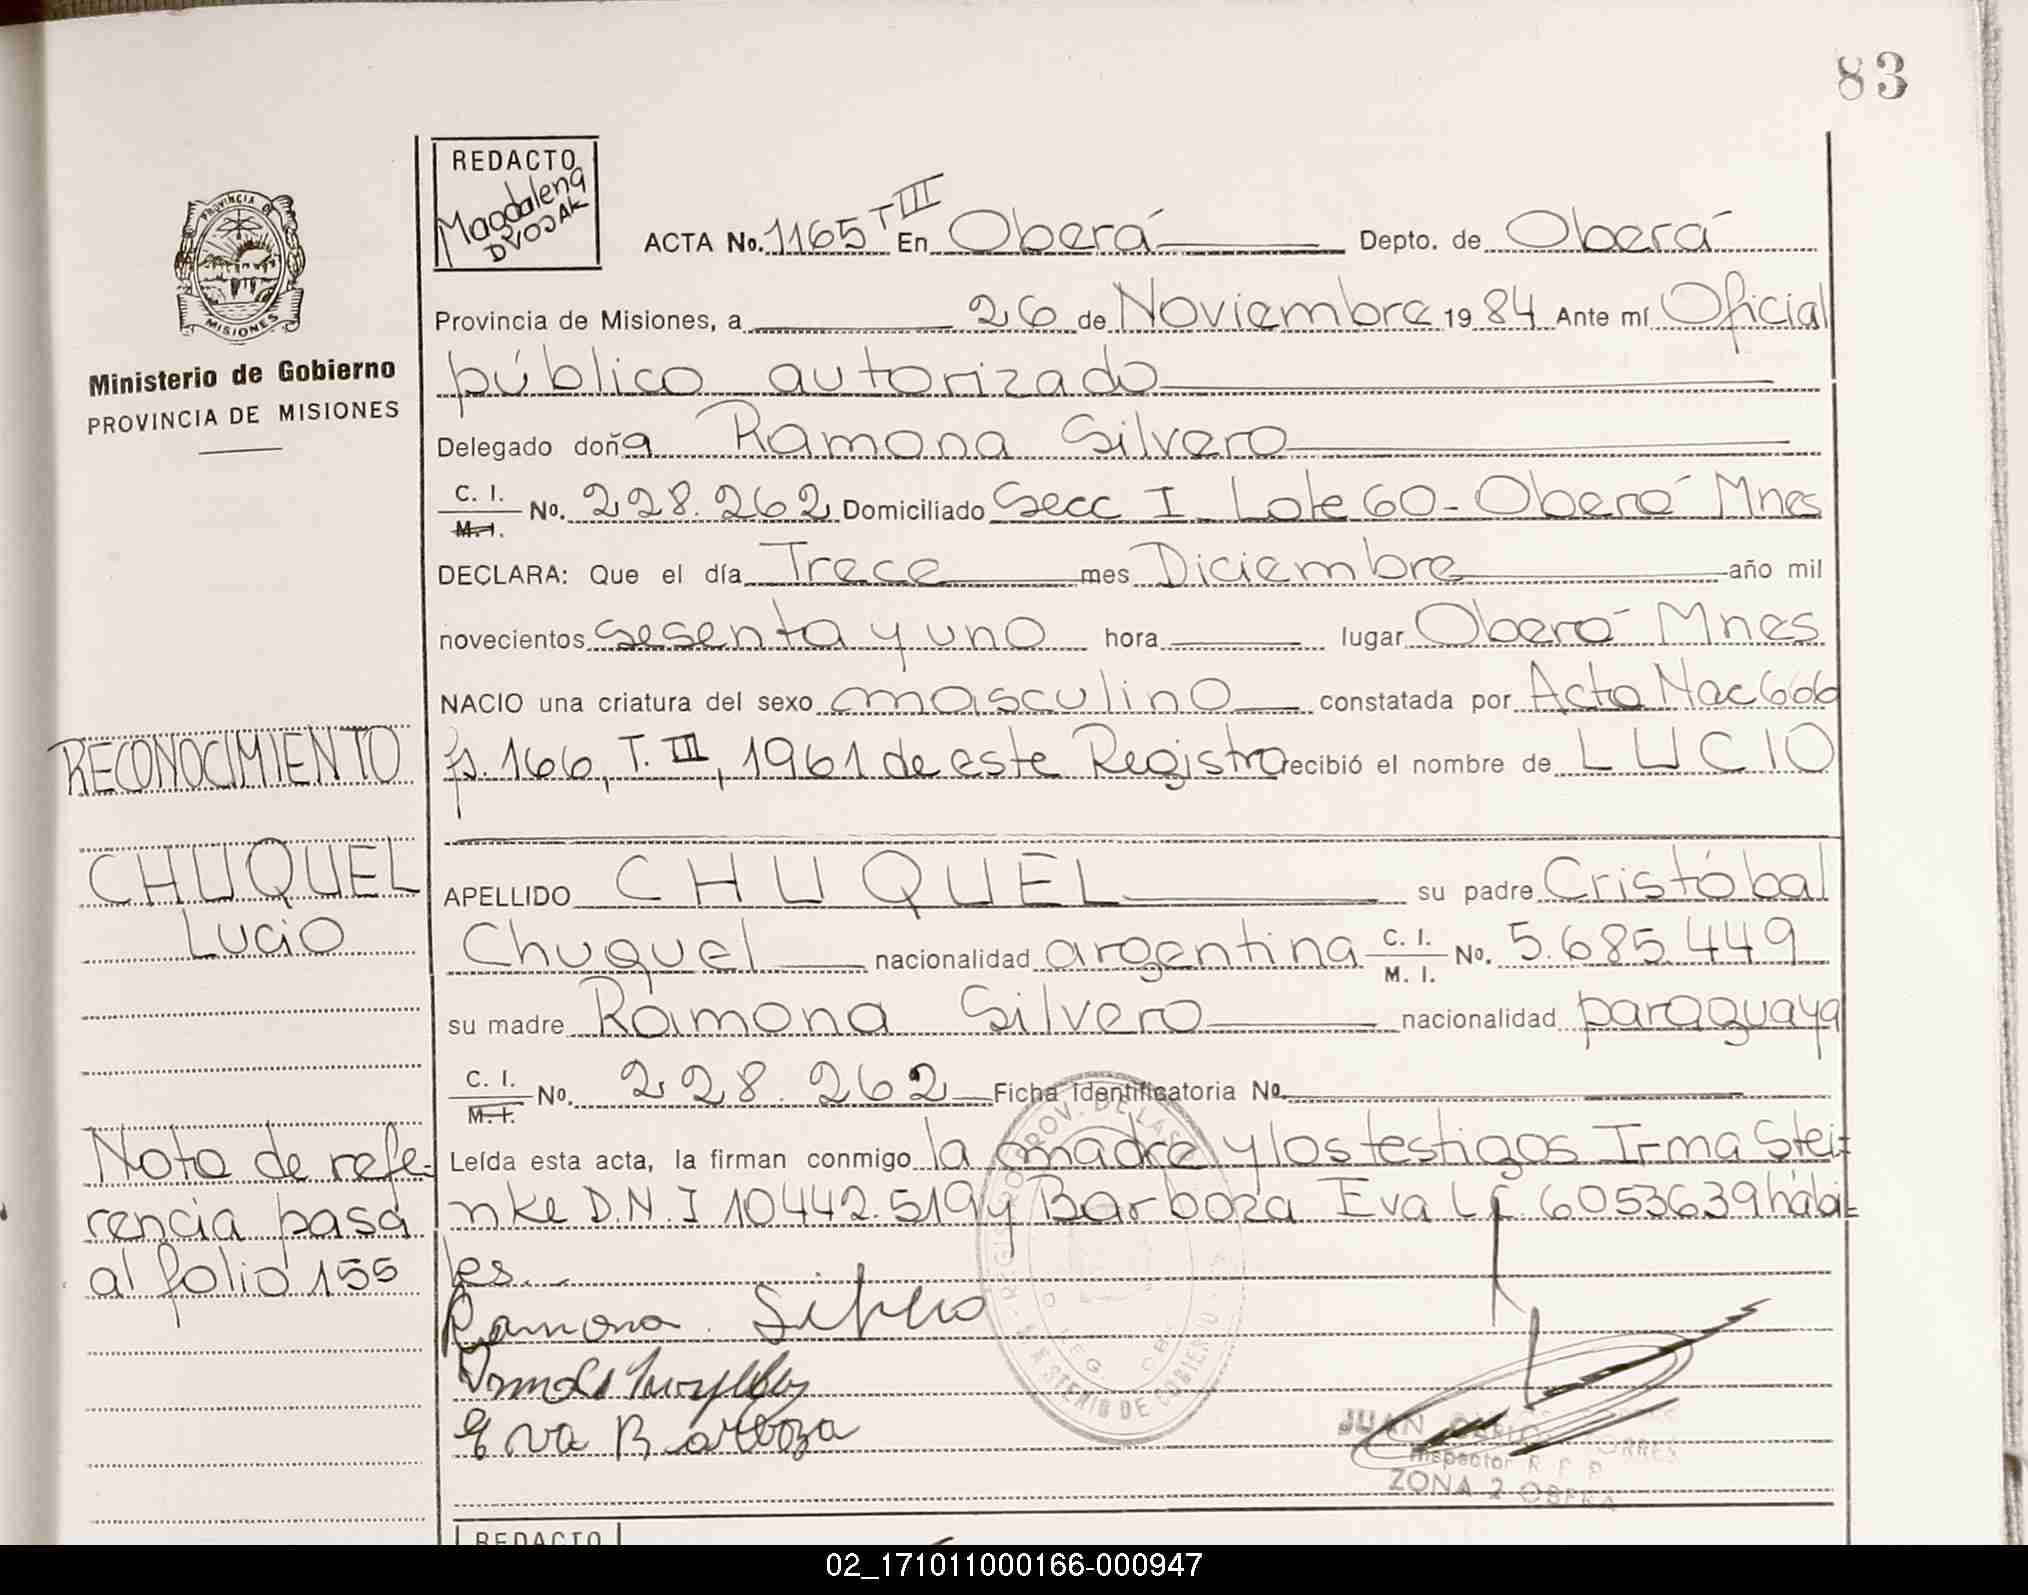 83
PROVINCIA DE
MISIONES
Ministerio de Gobierno
PROVINCIA DE MISIONES
REDACTO
Magdalena
DVOJAK
ACTA No. 1165 T III En Oberá Depto. de Oberá
Provincia de Misiones, a 26 de Noviembre 19 84 Ante mí Oficial
público autorizado
Delegado doña Ramona Silvero
C. I.
M. I. No. 228.262 Domiciliado Secc I Lote 60 - Oberá Mnes
DECLARA: Que el día Trece mes Diciembre año mil
novecientos sesenta y uno hora lugar Oberá Mnes
NACIO una criatura del sexo masculino constatada por Acta Nac 666
fs. 166, T. III, 1961 de este Registro recibió el nombre de LUCIO
RECONOCIMIENTO
CHUQUEL
Lucio
APELLIDO CHUQUEL su padre Cristóbal
Chuquel nacionalidad argentina C. I.
M. I. No. 5.685.449
su madre Ramona Silvero nacionalidad paraguaya
C. I.
M. I. No. 228.262 Ficha identificatoria No.
Leída esta acta, la firman conmigo la madre y los testigos Irma Stei-
nke D.N.I 10442.519 y Barboza Eva L C 6053639 hábi-
les.-
Nota de refe-
rencia pasa
al folio 155
Ramona Silvero
Eva Barboza
MINISTERIO DE GOBIERNO
JUAN CARLOS TORRES
Inspector R P P
ZONA 2 OBERA
REDACTO
02_171011000166-000947